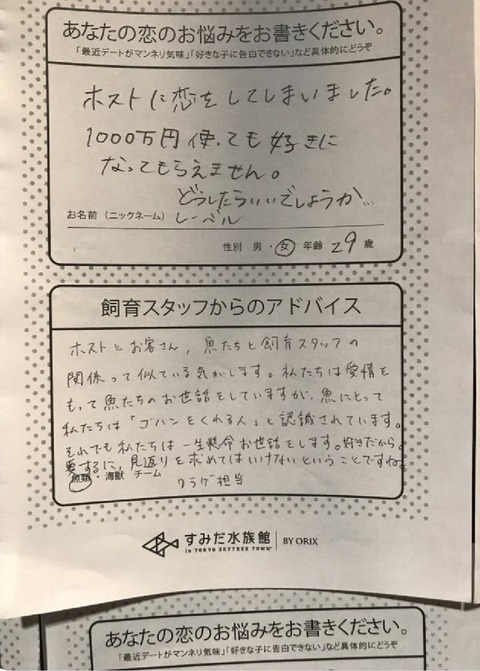 あなたの恋のお悩みをお書きください。
「最近デートがマンネリ気味」「好きな子に告白できない」など具体的にどうぞ
ホストに恋をしてしまいました。
1000万円使っても好きに
なってもらえません。
どうしたらいいでしょうか…
お名前（ニックネーム） レーベル
性別 男・女 年齢 29 歳
飼育スタッフからのアドバイス
ホストとお客さん、魚たちと飼育スタッフの
関係って似ている気がします。私たちは愛情を
もって魚たちのお世話をしていますが、魚にとって
私たちは「ゴハンをくれる人」と認識されています。
それでも私たちは一生懸命お世話をします。好きだから。
要するに、見返りを求めてはいけないということですね。
魚類・海獣 チーム クラゲ担当
すみだ水族館 BY ORIX
in TOKYO SKYTREE TOWN®
あなたの恋のお悩みをお書きください。
「最近デートがマンネリ気味」「好きな子に告白できない」など具体的にどうぞ